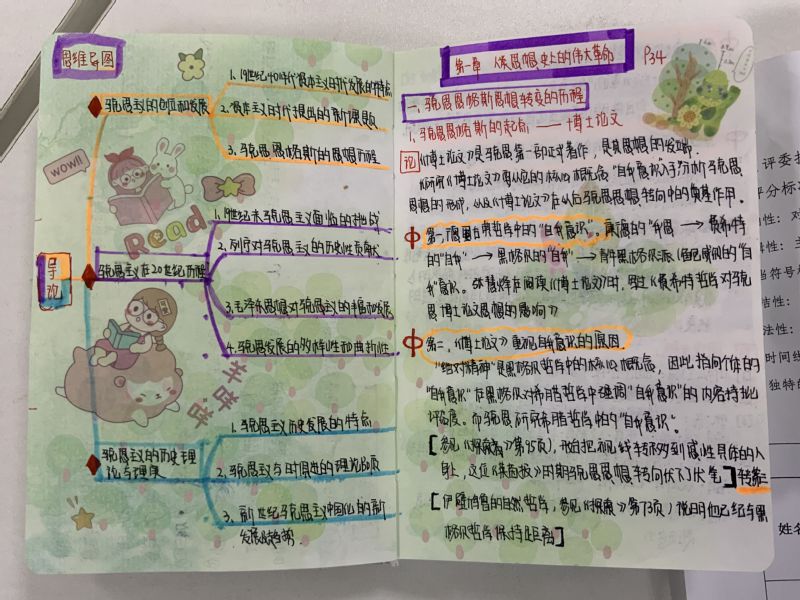 思维导图
导论
马克思主义的创立和发展
1. 19世纪40年代资本主义时代发展的特点
2. 资本主义时代提出的新课题
3. 马克思恩格斯的思想历程
wow!!
Read
马克思主义在20世纪历程
1. 19世纪末马克思主义面临的挑战
2. 列宁对马克思主义的历史性贡献
3. 毛泽东思想对马克思主义的丰富和发展
4. 马克思发展的多样性和曲折性
咩咩
马克思主义的历史理
论与现实
1. 马克思主义历史发展的特点
2. 马克思主义与时俱进的理论品质
3. 新世纪马克思主义中国化的新
发展
第一章 人类思想史上的伟大革命
P34
一、马克思恩格斯思想转变的历程
1、马克思恩格斯的起点 —— 博士论文
论
《博士论文》是马克思第一部正式著作,是其思想的发源
研究《博士论文》核心概念"自我意识"
思想的形成,以及《博士论文》在以后马克思思想转向中的奠基作用。
中
第一,德国古典哲学中的"自我意识"。康德的"我思 → 费希特
的"自我" → 黑格尔的"自我" → 青年黑格尔派
我"意识。张慧烨在阅读《博士论文》时,写过《费希特哲学对马克
思博士论文思想的影响》
中
第二,《博士论文》重视自我意识的原因
"绝对精神"是黑格尔哲学中的核心概念,因此指向个体的
"自我意识"在黑格尔对希腊哲学中强调"自我意识"的内容持批
评态度。而马克思研究希腊哲学的"自我意识"。
[参见《探索》第95页),开始把视线转移到感性具体的人
身上,这位《莱茵报》时期马克思思想转向伏下了伏笔]转第二
[伊壁鸠鲁的自然哲学,参见《探索》第73页)说明他已经与黑
格尔哲学保持距离]
评委打
评分标准
性:对
性:主
当符号
洁性:
法性:
时间线
独特的
姓名